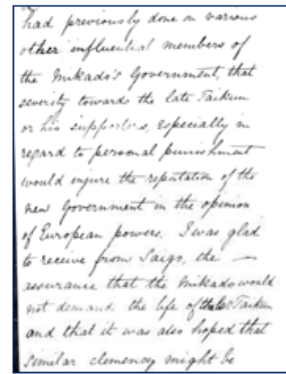 had previously done on various
other influential members of
the Mikado's Government, that
severity towards the late Taikun
or his supporters, especially in
regard to personal punishment
would injure the reputation of the
new Government in the opinion
of European powers. I was glad
to receive from Saigo, the —
assurance that the Mikado would
not demand the life of the late Taikun
and that it was also hoped that
similar clemency might be